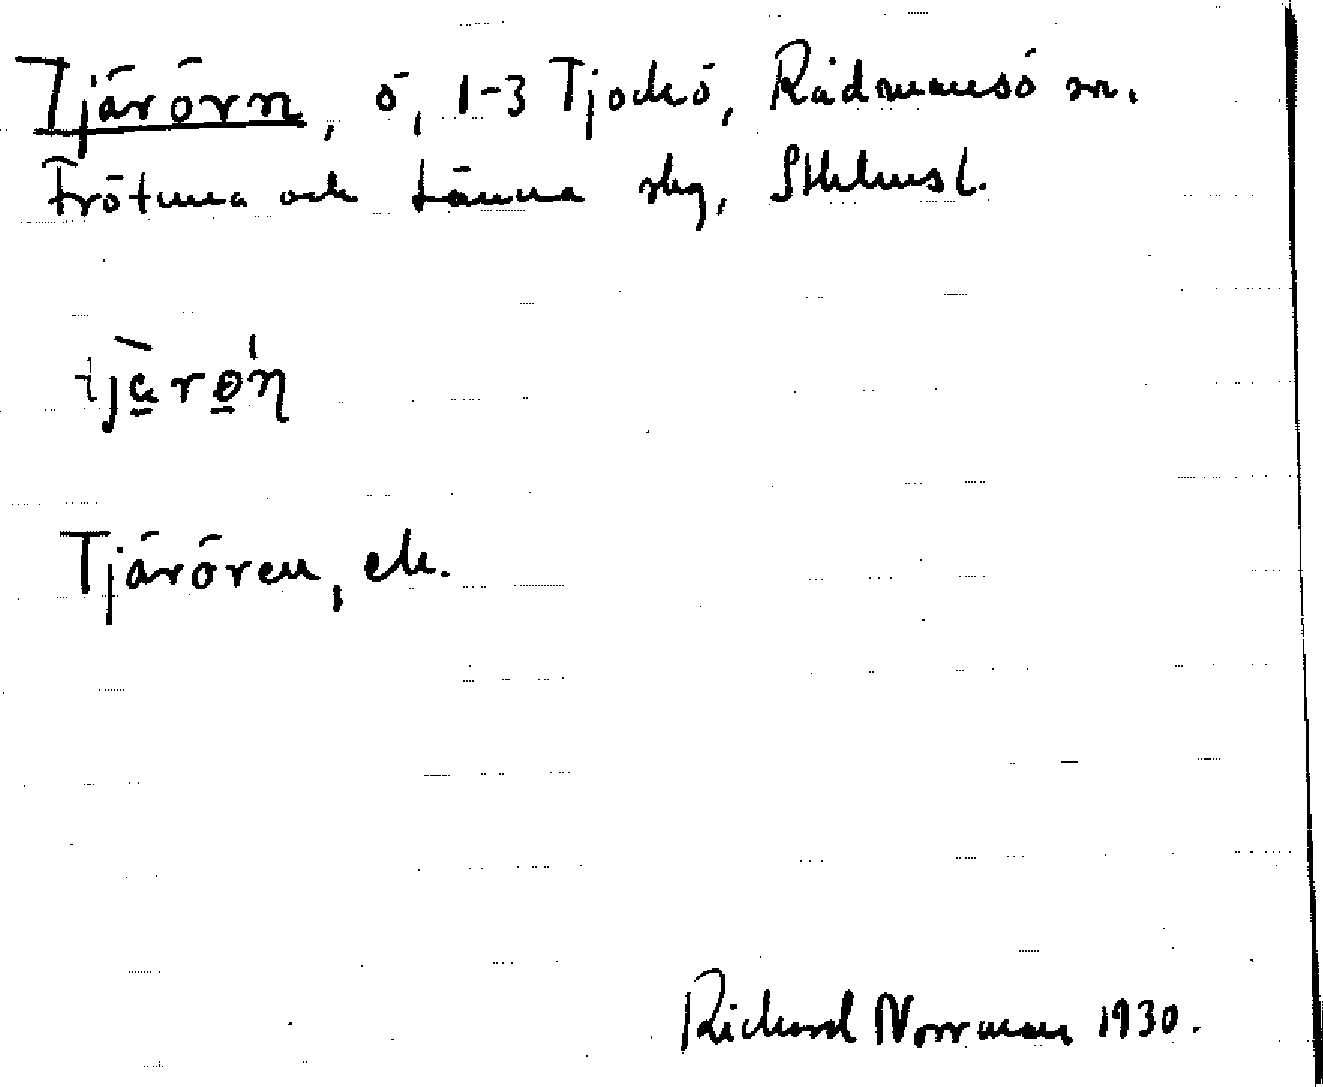 Tjärörn, ö, 1-3 Tjockö, Rådmansö sn.
Frötuna och Länna skg, Sthlms l.
Tjärören, ek.
Richard Norrman 1930.